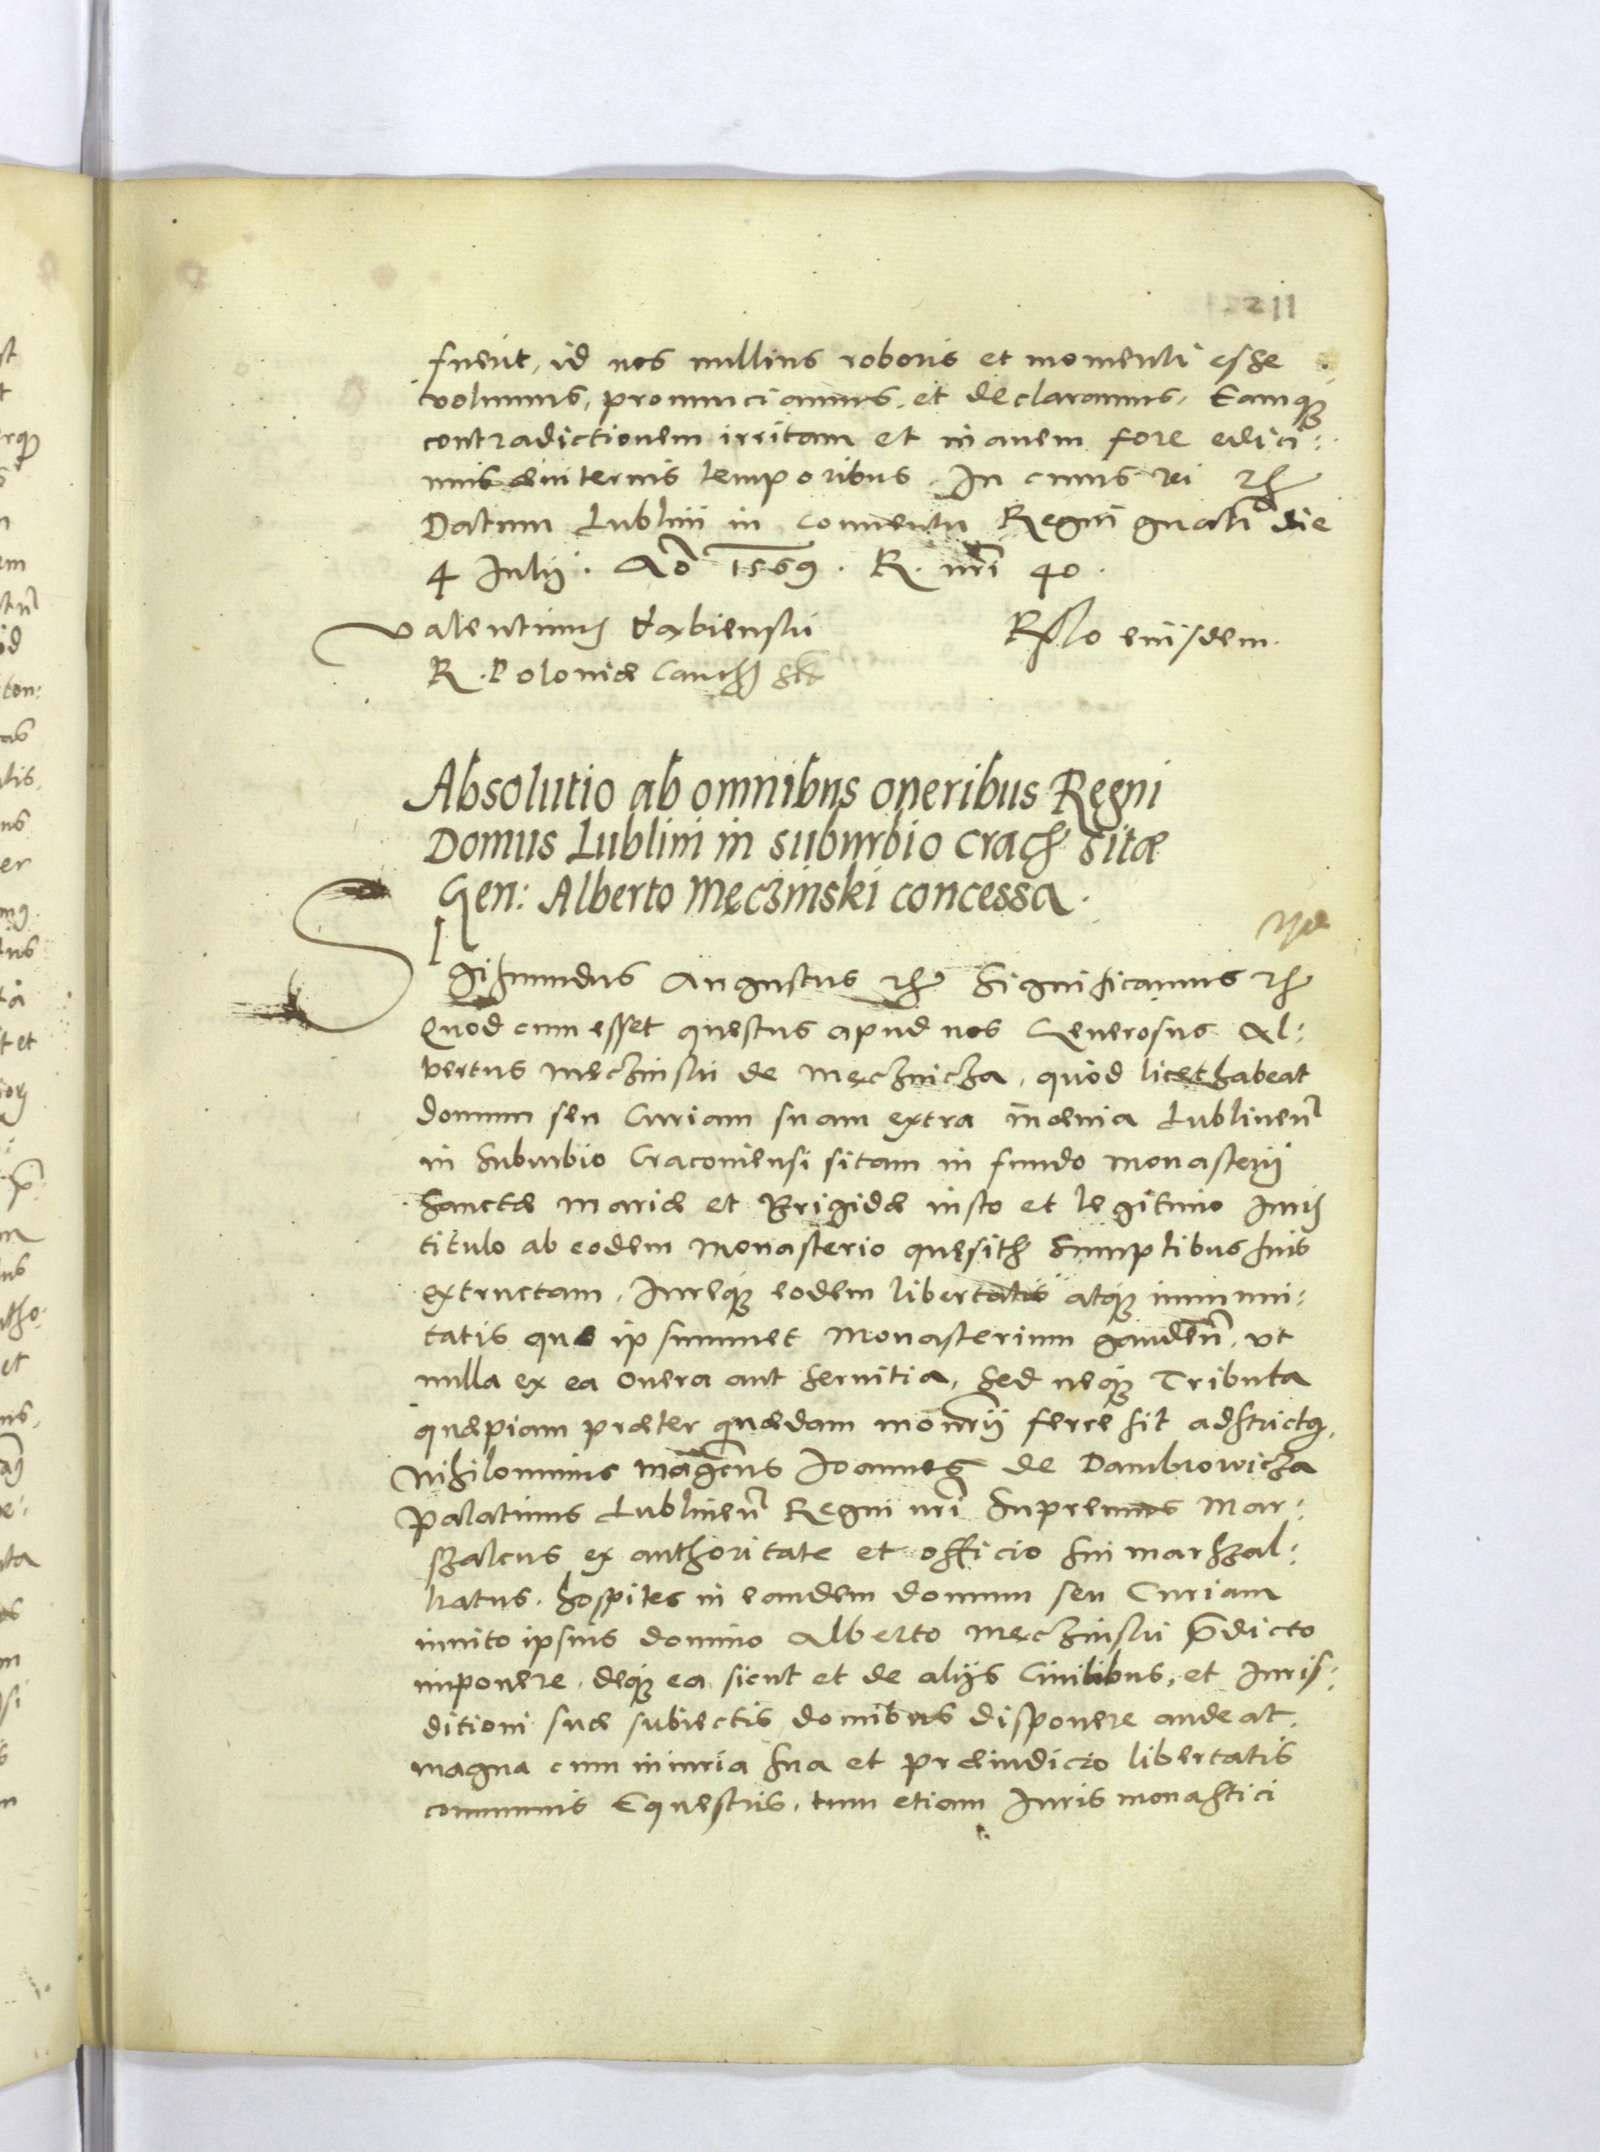 211
fuerit, id nos nullius roboris et momenti esse
volumus, pronunciamus et declaramus. Eamq3
contradictionem irritam et inanem fore edici:
mus aeviternis temporibus. In cuius rei
Datum Lublini in conventu Regni gnali die
4 Julij. Ao 1569. R. nri 40.
Valentinus Dabienski
R. Poloniae Canc
Rlo eiusdem.
Absolutio ab omnibus oneribus Regni
Domus Lublini in suburbio Crac sitae
Gen: Alberto Męczinski concessa.
Sigismundus Augustus Significamus
Quod cum esset questus apud nos Generosus Al:
bertus Męczinski de Męcznicza, quod licet habeat
domum seu Curiam suam extra maenia Lublinen
in suburbio Cracoviensi sitam in fundo monasterij
Sanctae Mariae et Brigidae iusto et legitimo
titulo ab eodem Monasterio quęsit sumptibus suis
extructam, Jureq3 eodem libertatis atq3 immuni:
tatis quo ipsummet Monasterium gauden, ut
nulla ex ea onera aut servitia, sed neq3 Tributa
quaepiam praeter quaedam monrij ferre sit adstrict9,
Nihilominus magcus Joannes de Dambrowicza
Palatinus Lublinen Regni nri Supremus Mar:
szalcus ex authoritate et officio sui marszal:
katus, hospites in eandem domum seu Curiam
invito ipsius domino Alberto Męczinski pdicto
imponere, deq3 ea sicut et de alijs Civilibus, et Juris:
ditioni suae subiectis domibus disponere audeat,
magna cum iniuria sua et praeiudicio libertatis
communis Equestris, tum etiam Juris monastici